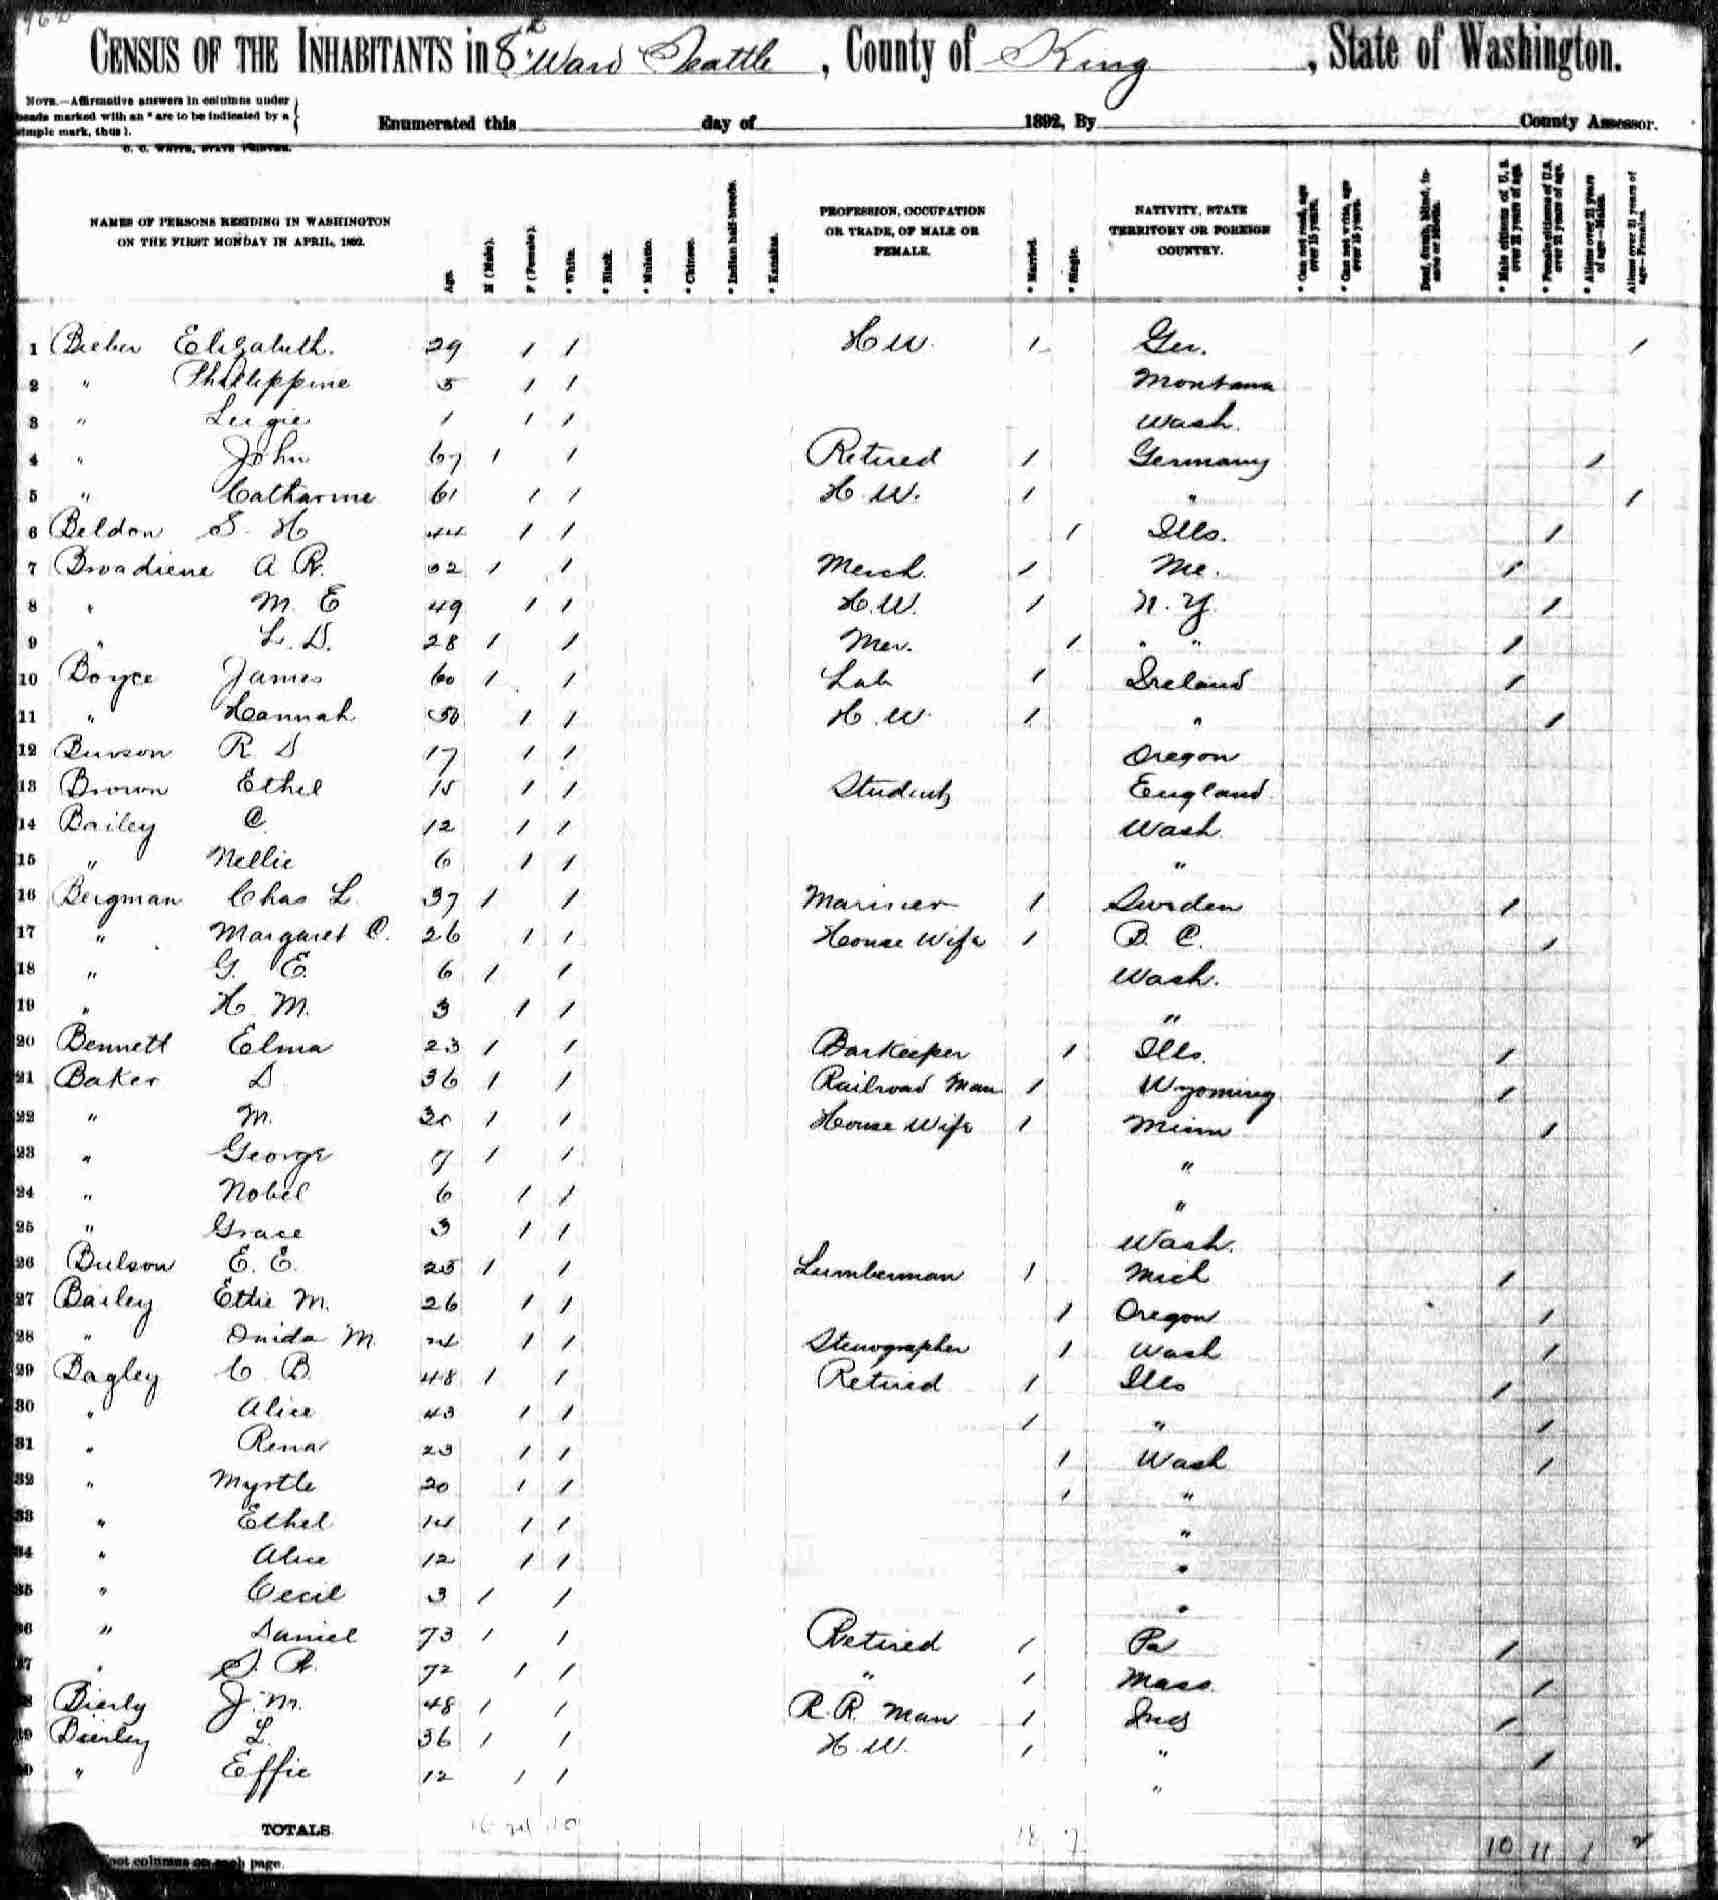 CENSUS OF THE INHABITANTS in 8th Ward Seattle, County of King, State of Washington.
NOTE.—Affirmative answers in columns under
heads marked with an * are to be indicated by a
simple mark, thus 1.
O. C. WHITE, STATE PRINTER.
Enumerated this day of 1892, By County Assessor.
NAMES OF PERSONS RESIDING IN WASHINGTON ON THE FIRST MONDAY IN APRIL, 1892. Age. M (Male). F (Female). * White. * Black. * Mulatto. * Chinese. * Indian half-breeds. * Kanakas. PROFESSION, OCCUPATION OR TRADE, OF MALE OR FEMALE. * Married. * Single. NATIVITY, STATE TERRITORY OR FOREIGN COUNTRY. * Can not read, age over 15 years. * Can not write, age over 15 years. Deaf, dumb, blind, insane or idiotic. * Male citizens of U.S. over 21 years of age. * Female citizens of U.S. over 21 years of age. * Aliens over 21 years of age—Males. Aliens over 21 years of age—Females.
1 Bieber Elizabeth. 29 1 1 H W. 1 Ger. 1
2 " Phillippine 5 1 1 Montana
3 " 1 1 1 Wash.
4 " John 67 1 1 Retired 1 Germany 1
5 " Catharine 61 1 1 H. W. 1 " 1
6 Beldon S. H 44 1 1 1 Ills. 1
7 A R. 1 1 Merch. 1 Me. 1
8 " M. E 49 1 1 H. W. 1 N. Y. 1
9 " L. D. 28 1 1 Mer. 1 " " 1
10 Boyce James 60 1 1 Lab 1 Ireland 1
11 " Hannah 50 1 1 H. W. 1 " 1
12 R D 17 1 1 Oregon
13 Brown Ethel 15 1 1 Student England.
14 Bailey C. 12 1 1 Wash.
15 " Nellie 6 1 1 "
16 Bergman Chas L. 37 1 1 Mariner 1 Sweden 1
17 " Margaret C. 26 1 1 House Wife 1 B. C. 1
18 " G. E. 6 1 1 Wash.
19 " H. M. 3 1 1 "
20 Bennett Elma 23 1 1 Barkeeper 1 Ills. 1
21 Baker D 36 1 1 Railroad Man 1 Wyoming 1
22 " M. 30 1 1 House Wife 1 Minn 1
23 " George 7 1 1 "
24 " Nobel 6 1 1 "
25 " Grace 3 1 1 Wash.
26 Bulson E. E. 25 1 1 Lumberman 1 Mich 1
27 Bailey Ettie M. 26 1 1 1 Oregon 1
28 " Onida M. 24 1 1 Stenographer 1 Wash 1
29 Bagley C B. 48 1 1 Retired 1 Ills 1
30 " Alice 43 1 1 1 " 1
31 " Rena 23 1 1 1 Wash 1
32 " Myrtle 20 1 1 1 "
33 " Ethel 14 1 1 "
34 " Alice 12 1 1 "
35 " Cecil 3 1 1 "
36 " Daniel 73 1 1 Retired 1 Pa 1
37 " S. R. 72 1 1 " 1 Mass. 1
38 Bierly J. M. 48 1 1 R. R. Man 1 Ind 1
39 Bierley L. 36 1 1 H. W. 1 " 1
40 " Effie 12 1 1 "
TOTALS. 16 24 40 18 7 10 11 1 2
Foot columns on each page.